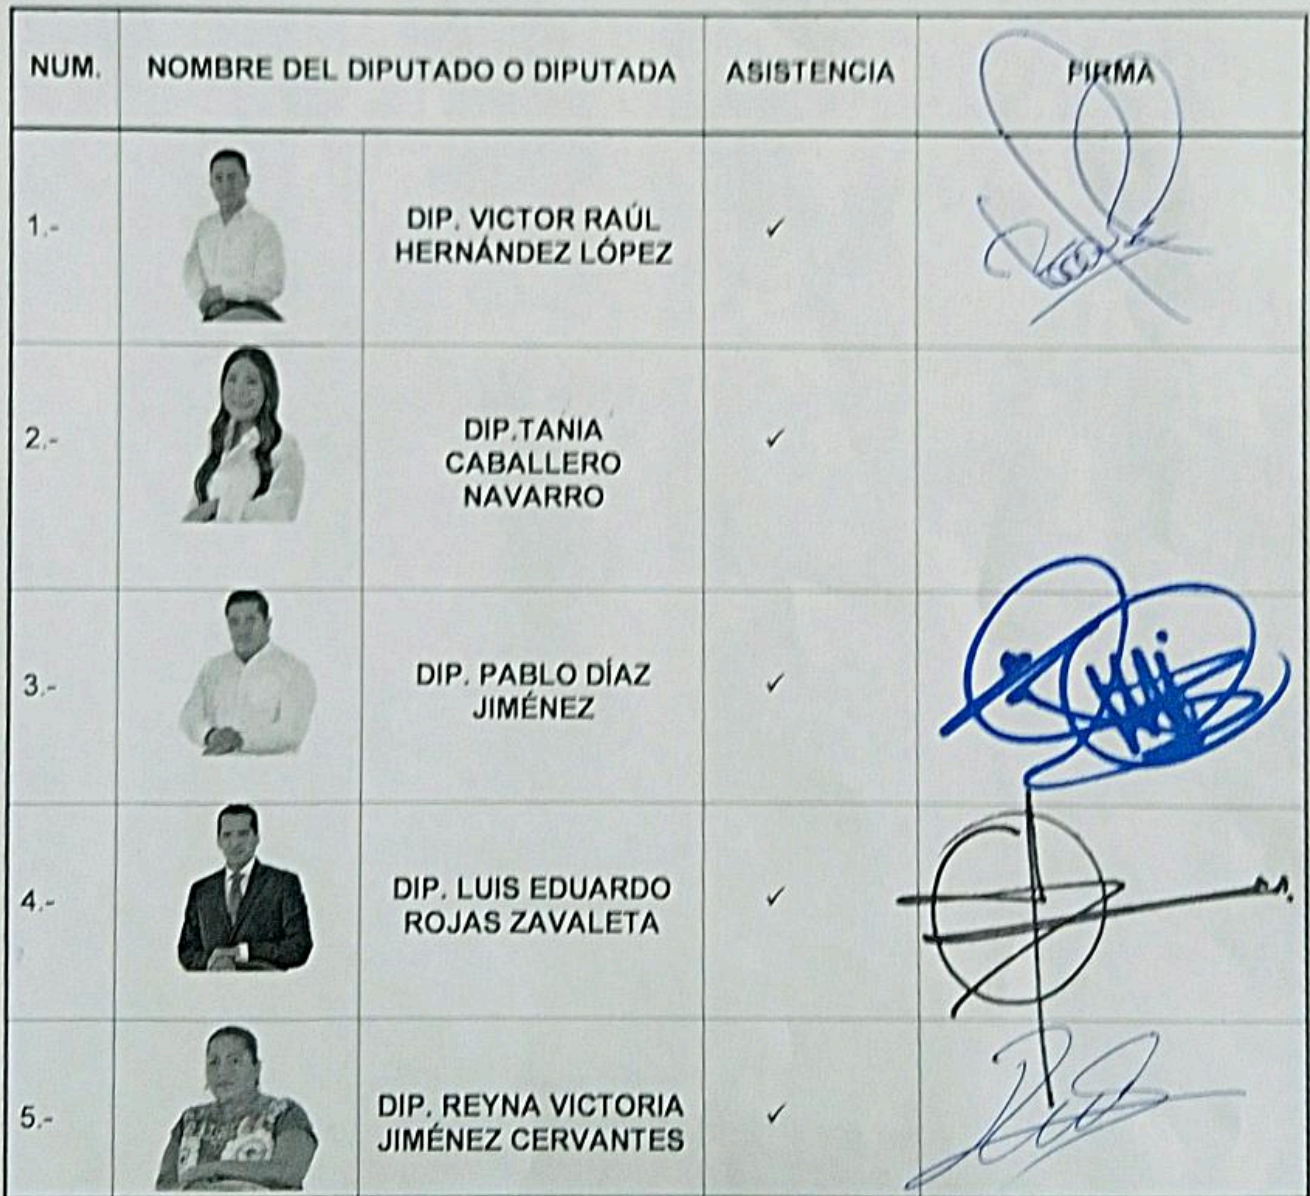 NUM. NOMBRE DEL DIPUTADO O DIPUTADA ASISTENCIA FIRMA
1.- DIP. VICTOR RAÚL
HERNÁNDEZ LÓPEZ ✓
2.- DIP.TANIA
CABALLERO
NAVARRO ✓
3.- DIP. PABLO DÍAZ
JIMÉNEZ ✓
4.- DIP. LUIS EDUARDO
ROJAS ZAVALETA ✓
5.- DIP. REYNA VICTORIA
JIMÉNEZ CERVANTES ✓